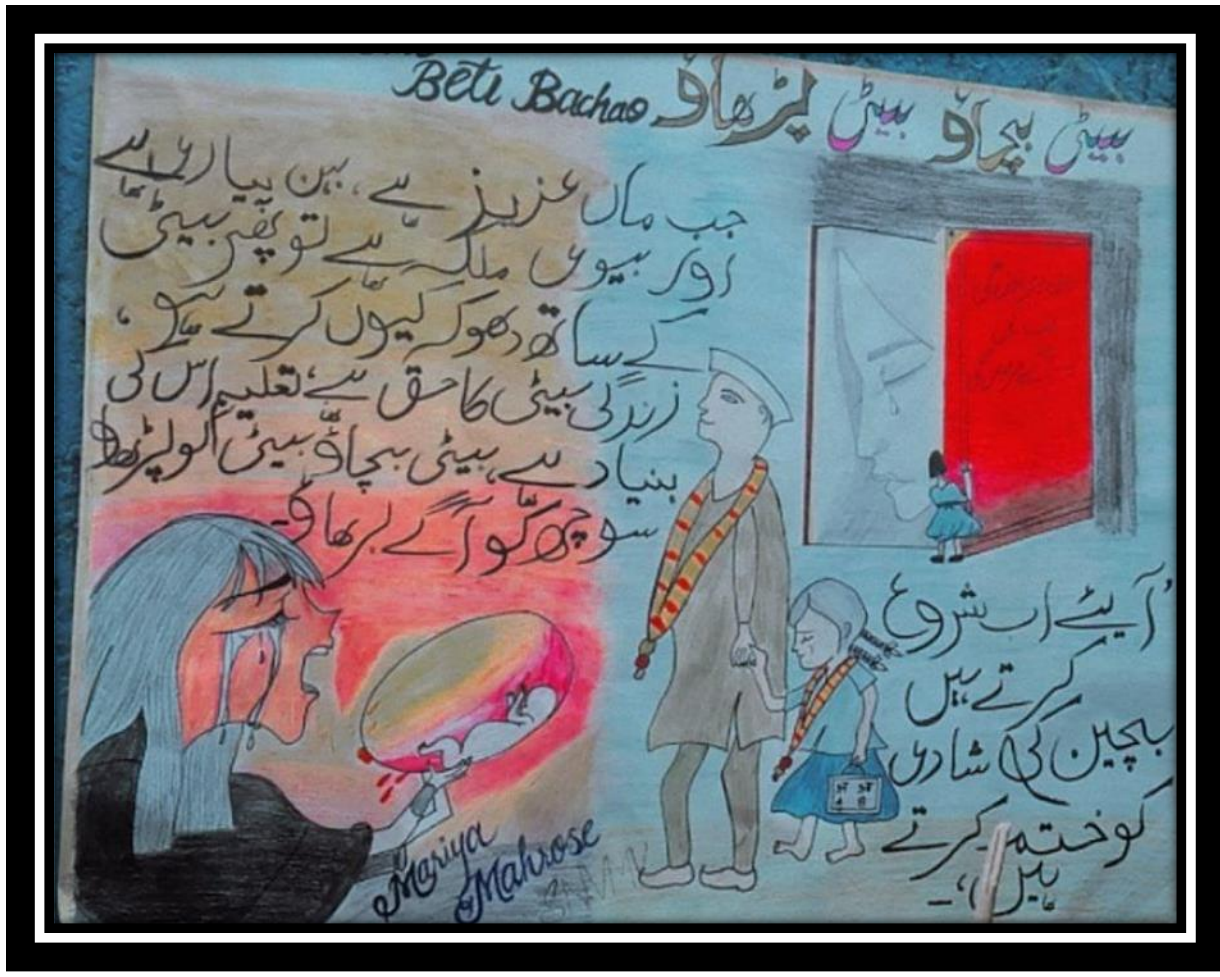 Beti Bachao
بیٹی بچاؤ بیٹی پڑھاؤ
جب ماں عزیز ہے، بہن پیاری ہے
اور بیوی ملکہ ہے تو پھر بیٹی
کے ساتھ دھوکہ کیوں کرتے ہو،
زندگی بیٹی کا حق ہے، تعلیم اس کی
بنیاد ہے، بیٹی بچاؤ بیٹی کو پڑھا
سوچھ کو آگے بڑھاؤ۔
آیئے اب شروع
کرتے ہیں
بچپن کی شادی
کو ختم کرتے
ہیں،۔
Mariya
Mahrose